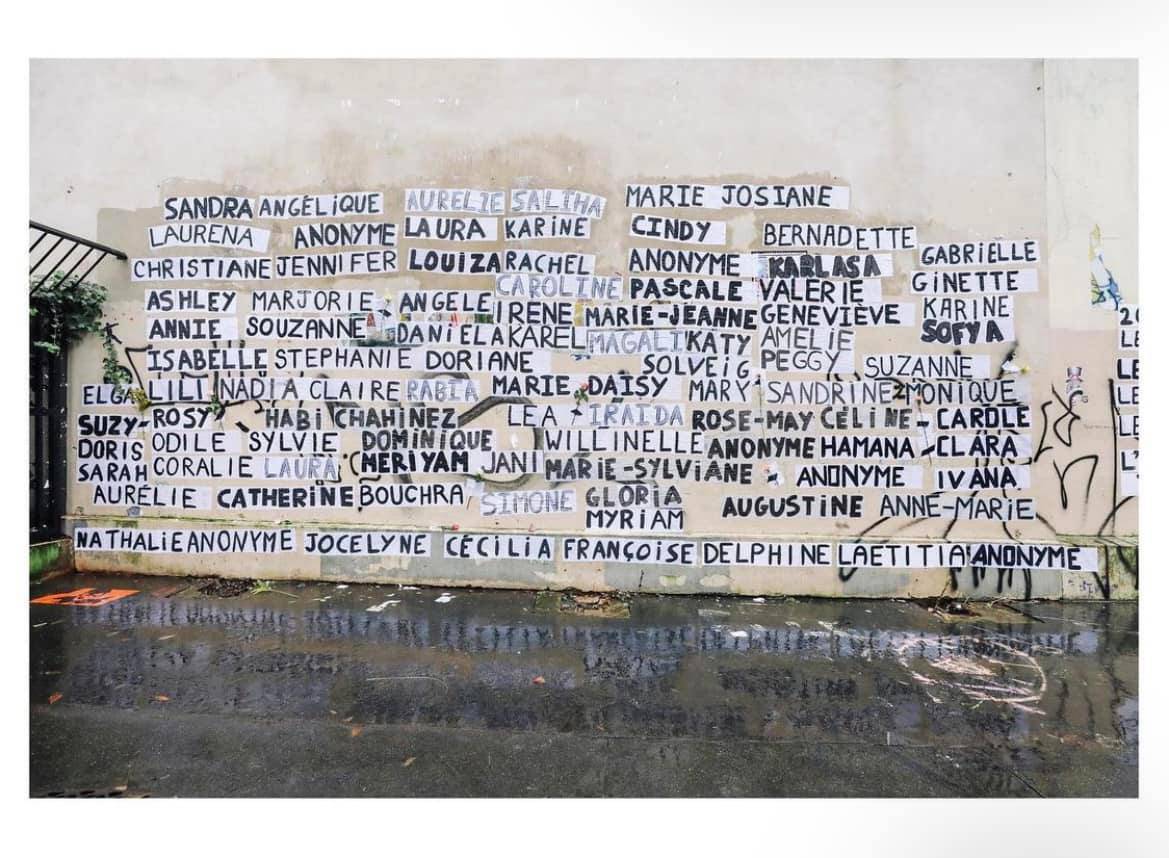 SANDRA ANGÉLIQUE AURELIE SALIHA MARIE JOSIANE
LAURENA ANONYME LAURA KARINE CINDY BERNADETTE
CHRISTIANE JENNIFER LOUIZA RACHEL ANONYME KARLASA GABRIELLE
CAROLINE PASCALE VALERIE GINETTE
ASHLEY MARJORIE ANGELE IRENE MARIE-JEANNE GENEVIÈVE KARINE
ANNIE SOUZANNE DANIELA KAREL MAGALI KATY AMELIE SOFYA
ISABELLE STEPHANIE DORIANE SOLVEIG PEGGY SUZANNE
ELGA LILI NADIA CLAIRE RABIA MARIE DAISY MARY SANDRINE MONIQUE
SUZY- ROSY HABI CHAHINEZ LEA IRAIDA ROSE-MAY CÉLINE CAROLE
DORIS ODILE SYLVIE DOMINIQUE WILLINELLE ANONYME HAMANA CLARA
SARAH CORALIE LAURA MERIYAM JANI MARIE-SYLVIANE ANONYME IVANA
AURÉLIE CATHERINE BOUCHRA SIMONE GLORIA AUGUSTINE ANNE-MARIE
MYRIAM
NATHALIE ANONYME JOCELYNE CÉCILIA FRANÇOISE DELPHINE LAETITIA ANONYME